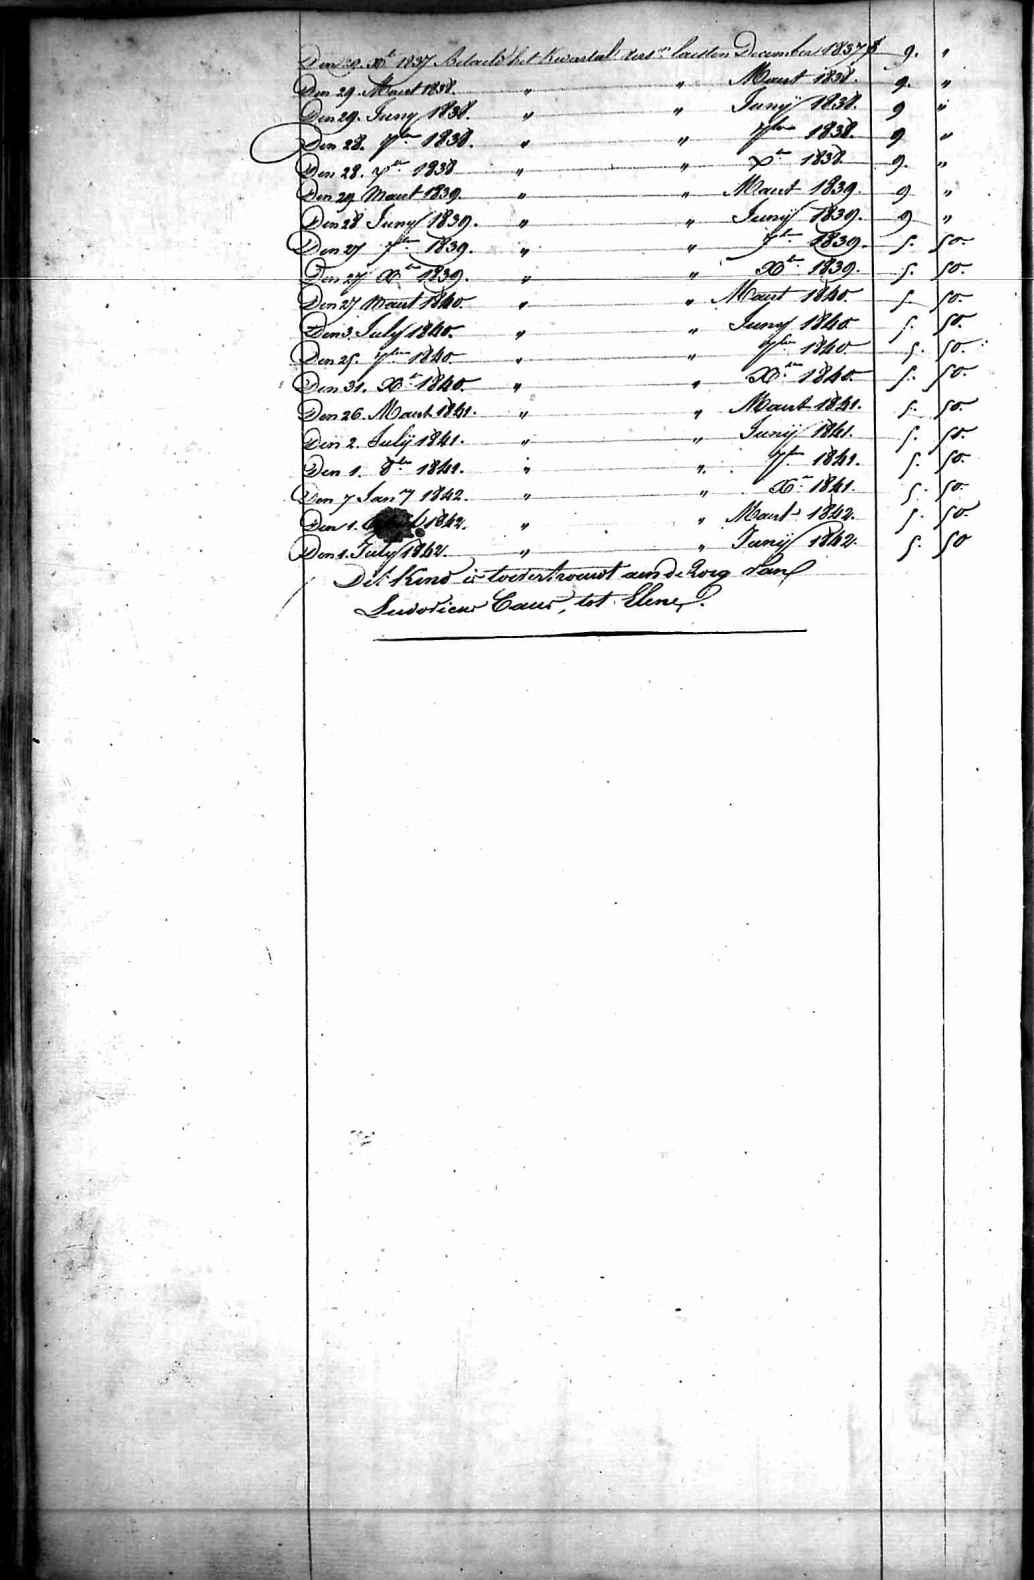 Den 1837 betaeld het kwartal versn laesten December 1837 f 9. "
Den 29. Maert 1838. " " Maert 1838. 9. "
Den 29. Juny 1838. " " Junij 1838. 9 "
Den 28. 7bre 1838. " " 7bre 1838. 9 "
Den 28. Xbre 1838 " " Xbre 1838. 9. "
Den 29 Maert 1839. " " Maert 1839. 9 "
Den 28 Juny 1839. " " Junij 1839. 9 "
Den 27 7bre 1839. " " 7bre 1839. 5. 50.
Den 27 Xbre 1839. " " Xbre 1839. 5. 50.
Den 27 Maert 1840. " " Maert 1840. 5. 50.
Den 3. July 1840. " " Juny 1840 5. 50.
Den 25. 7bre 1840. " " 7bre 1840. 5. 50.
Den 31. Xbre 1840. " " Xbre 1840. 5. 50.
Den 26. Maert 1841. " " Maert 1841. 5. 50.
Den 2. Julij 1841. " " Junij 1841. 5. 50.
Den 1. 8bre 1841. " " 7bre 1841. 5. 50.
Den 7 Jany 1842. " " Xbre 1841. 5. 50.
Den 1. 1842. " " Maert 1842. 5. 50.
Den 1. July 1842. " " Junij 1842. 5. 50
Dit Kind is toevertrouwt aen de zorg van
Ludovicus Caus, tot Elene.